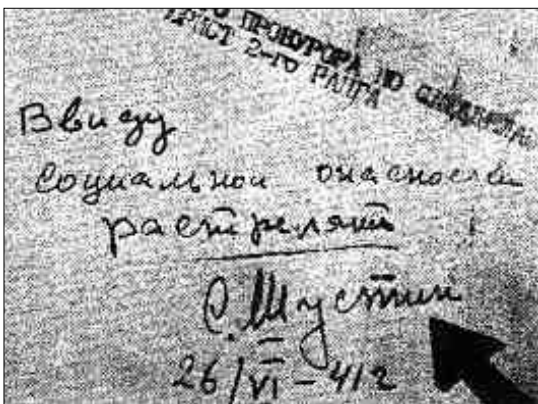 ПРОКУРОРА ПО
ЮРИСТ 2-го РАНГА
Ввиду
социальной опасности
расстрелять
С. Шустин
26/VI-41г